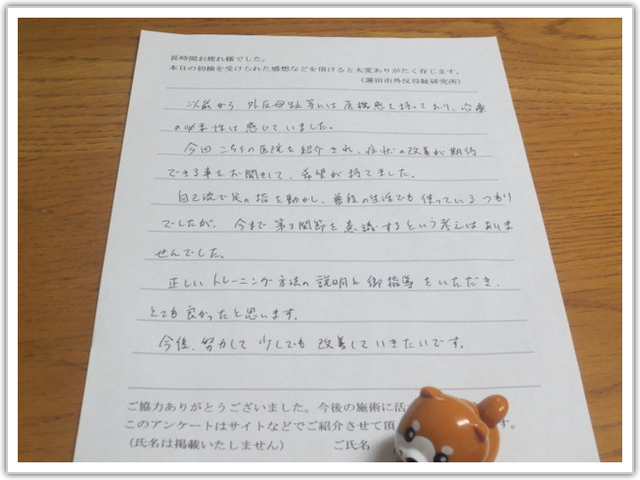 長時間お疲れ様でした。
本日の初検を受けられた感想などを頂けると大変ありがたく存じます。
(蓮田市外反母趾研究所)
以前から 外反母趾等には危機感を持っており、治療
の必要性は感じていました。
今回 こちらの医院を紹介され、症状の改善が期待
できる事をお聞きして、希望が持てました。
自己流で足の指を動かし、普段の生活でも使っているつもり
でしたが、今まで第3関節を意識するという考えはありま
せんでした。
正しいトレーニング方法の説明と御指導をいただき、
とても良かったと思います。
今後、努力して少しでも改善していきたいです。
ご協力ありがとうございました。今後の施術に活
このアンケートはサイトなどでご紹介させて頂 す。
(氏名は掲載いたしません) ご氏名